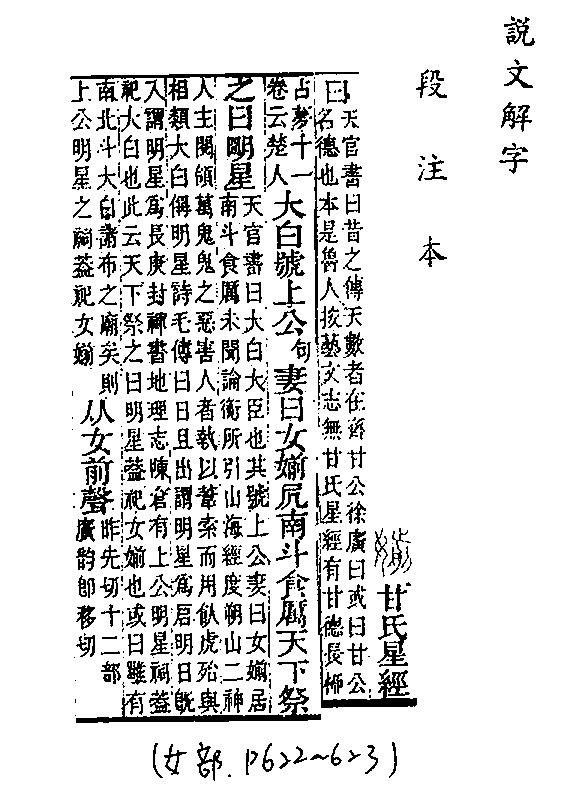 說文解字
段注本
甘氏星經
天官書曰昔之傳天數者在齊甘公徐廣曰或曰甘公
曰名德也本是魯人按藝文志無甘氏星經有甘德長柳
占夢十一
卷云楚人
大白號上公句妻曰女媊凥南斗食厲天下祭
之曰明星
天官書曰大白大臣也其號上公妻曰女媊居
南斗食厲未聞論衡所引山海經度朔山二神
人主閱領萬鬼鬼之惡害人者執以葦索而用飤虎殆與
相類大白偁明星詩毛傳曰日旦出謂明星爲启明日旣
入謂明星爲長庚封禪書地理志陳倉有上公明星祠蓋
祀大白也此云天下祭之曰明星蓋祀女媊也或曰雖有
南北斗大白諸布之廟矣則
上公明星之祠蓋祀女媊
从女前聲
昨先切十二部
廣韵卽移切
(女部. P622~623)